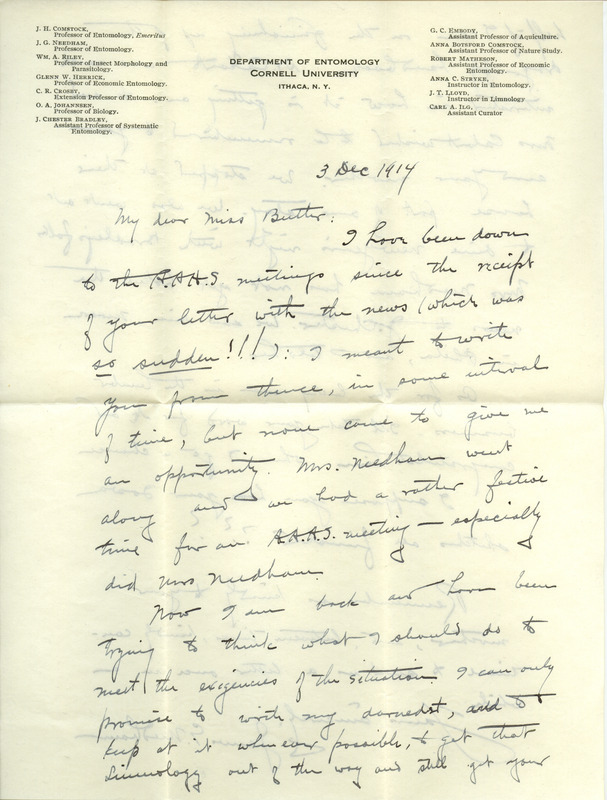 J. H. COMSTOCK,
Professor of Entomology, Emeritus
J. G. NEEDHAM,
Professor of Entomology.
WM. A. RILEY,
Professor of Insect Morphology and
Parasitology.
GLENN W. HERRICK,
Professor of Economic Entomology.
C. R. CROSBY,
Extension Professor of Entomology.
O. A. JOHANNSEN,
Professor of Biology.
J. CHESTER BRADLEY,
Assistant Professor of Systematic
Entomology.
DEPARTMENT OF ENTOMOLOGY
CORNELL UNIVERSITY
ITHACA, N. Y.
G. C. EMBODY,
Assistant Professor of Aquiculture.
ANNA BOTSFORD COMSTOCK,
Assistant Professor of Nature Study.
ROBERT MATHESON,
Assistant Professor of Economic
Entomology.
ANNA C. STRYKE,
Instructor in Entomology.
J. T. LLOYD,
Instructor in Limnology
CARL A. ILG,
Assistant Curator
3 Dec 1914
My dear Miss Butter:
I have been down
to the A.A.A.S meetings since the receipt
of your letter with the news (which was
so sudden!!!): I meant to write
you from thence, in some interval
of time, but none came to give me
an opportunity. Mrs. Needham went
along and we had a rather festive
time for an A.A.A.S. meeting – especially
did Mrs Needham.
Now I am back and have been
trying to think what I should do to
meet the exigencies of the situation. I can only
promise to work my darnedst, and to
keep at it whenever possible, to get that
Limnology out of the way and still get your